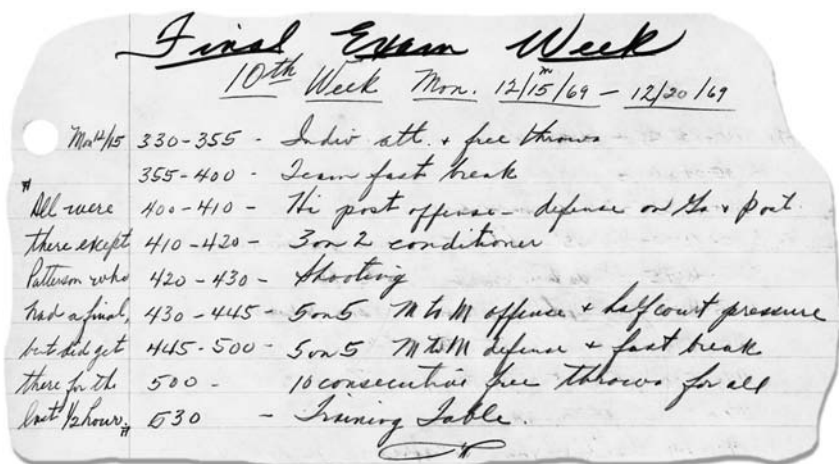 Final Exam Week
10th Week Mon. 12/15/69 - 12/20/69
Mon 12/15 330-355 - Indiv att. + free throws
355-400 - Team fast break
" All were 400-410 - Hi post offense - defense on Gs + post
there except 410-420 - 3 on 2 conditioner
Patterson who 420-430 - Shooting
had a final, 430-445 - 5 on 5 M to M offense + half court pressure
but did get 445-500 - 5 on 5 M to M defense + fast break
there for the 500 - 10 consecutive free throws for all
last 1/2 hour. " 530 - Training Table.